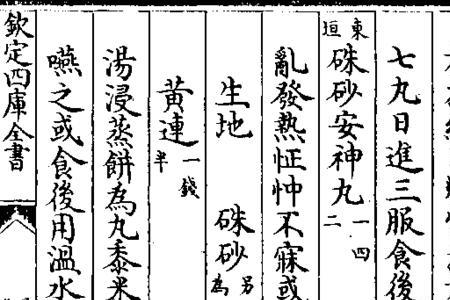 七丸日進三服食後
東垣硃砂安神丸一四二
亂發熱怔忡不寐或
生地　硃砂另為
黃連一錢半
湯浸蒸餅為丸黍米
嚥之或食後用溫水
欽定四庫全書